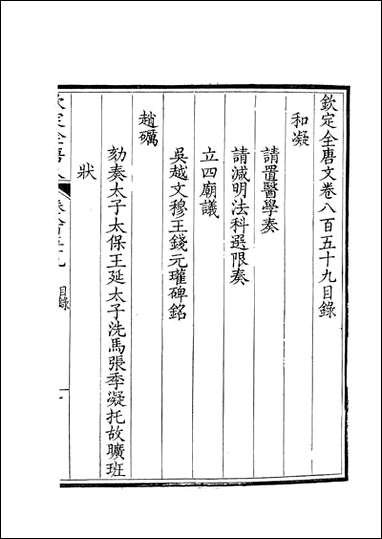 欽定全唐文卷八百五十九目錄
和凝
請置醫學奏
請減明法科選限奏
立四廟議
吳越文穆王錢元瓘碑銘
趙礪
劾奏太子太保王延太子洗馬張季凝托故曠班
狀
欽定全唐文
目錄